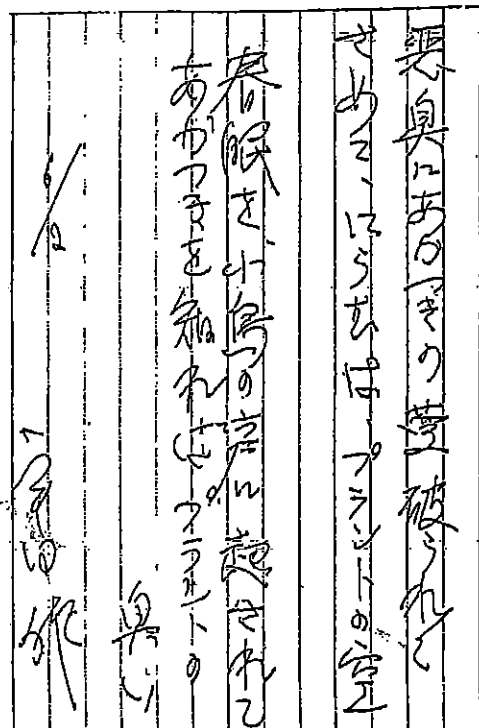 悪臭にあかつきの夢破られて
さめて、にらむは、プラントの空
春眠を小鳥の声に起されて
あかつきを知ればプラントの
臭い
6/2